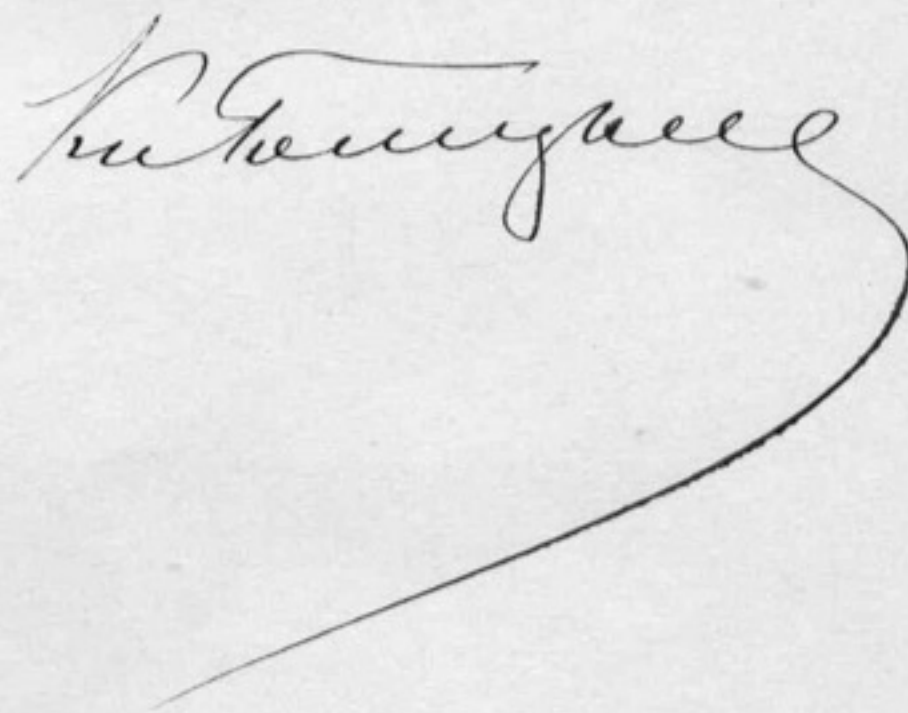 Кн Голицынъ